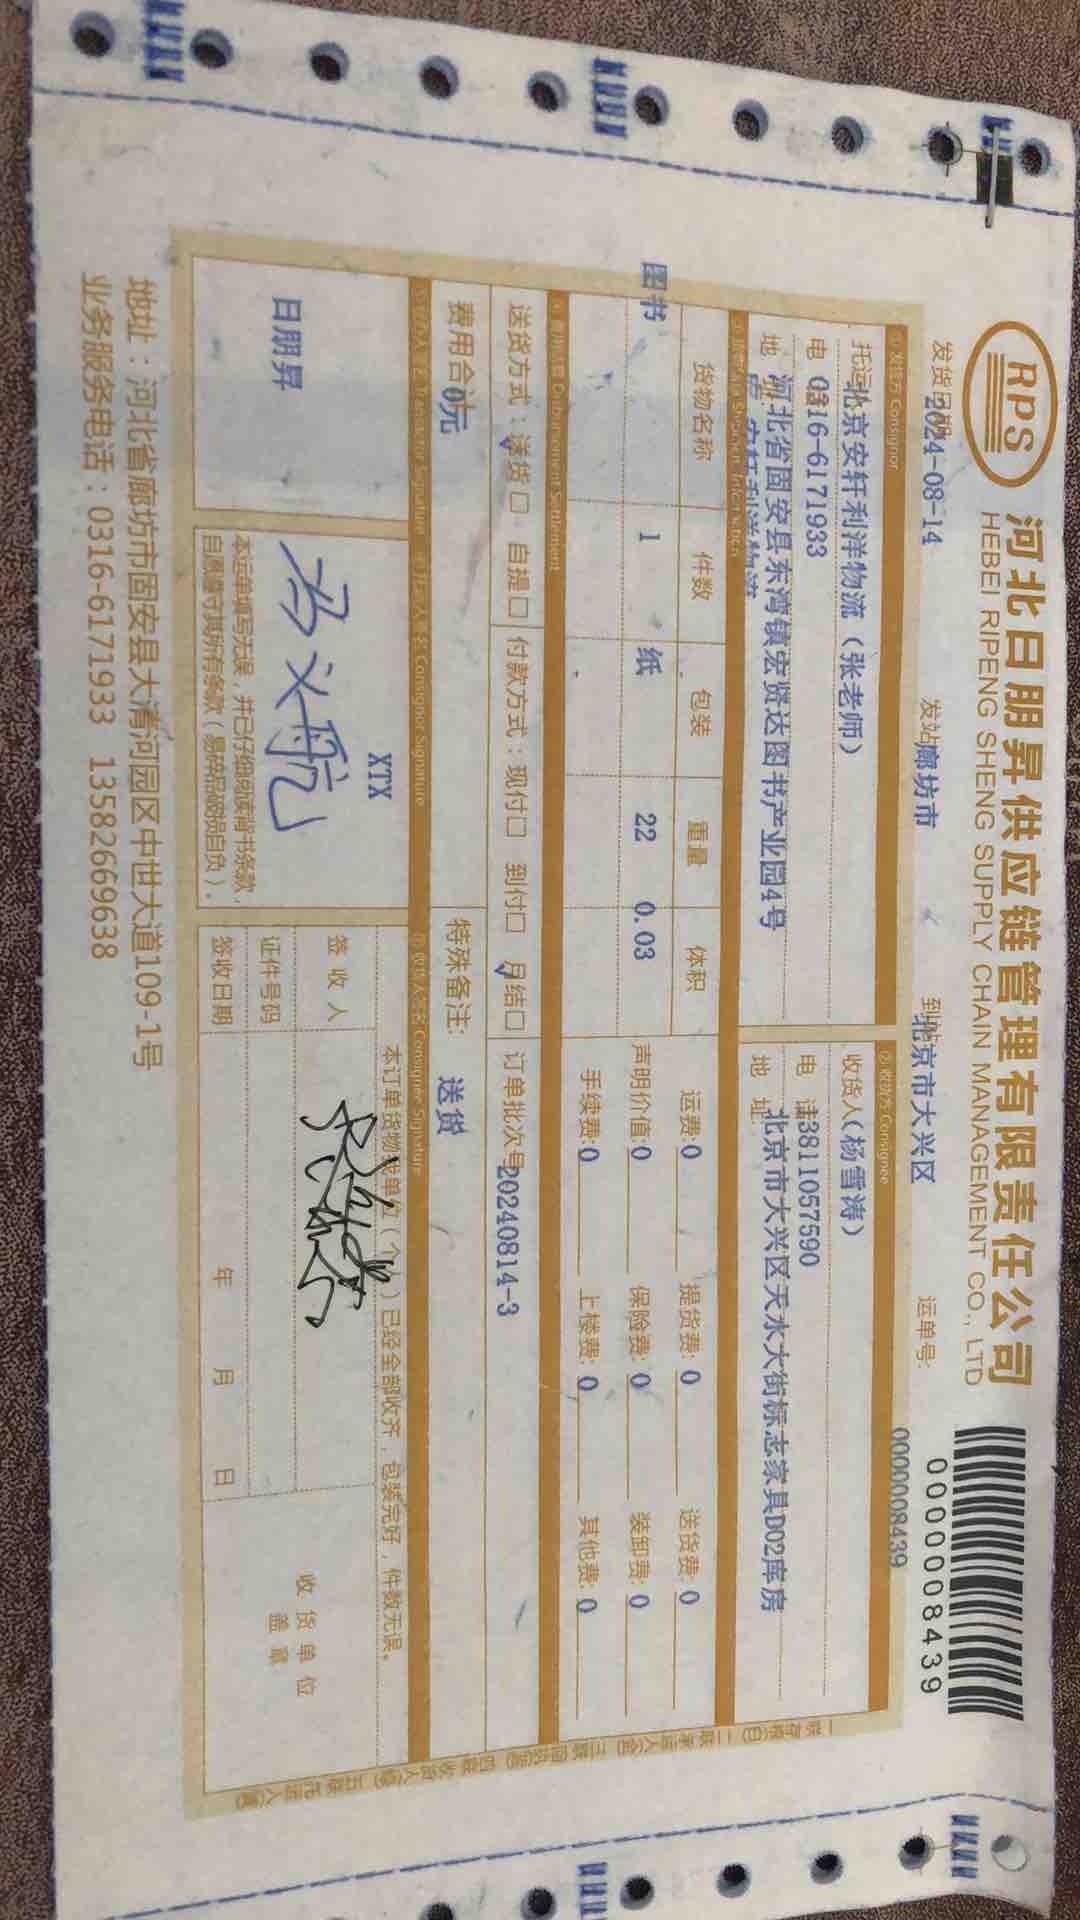 RPS
河北日朋昇供应链管理有限责任公司
HEBEI RIPENG SHENG SUPPLY CHAIN MANAGEMENT CO., LTD
0000008439
发货日期 2024-08-14 发站 廊坊市 到站 北京市大兴区 运单号: 0000008439
① 发货方 Consignor
托运 北京安轩利洋物流（张老师）
电 0316-6171933
地 河北省固安县东湾镇宏贤达图书产业园4号
安轩利洋物流
② 收货方 Consignee
收货人（杨雪涛）
电 话 13811057590
地 址 北京市大兴区天水大街标志家具D02库房
③ Shipment Information
货物名称 件数 包装 重量 体积
图书 1 纸 22 0.03
运费:0 提货费:0 送货费:0
声明价值:0 保险费:0 装卸费:0
手续费:0 上楼费:0 其他费:0
Disbursement Settlement
送货方式：送货□ 自提□ 付款方式：现付□ 到付□ 月结□ 订单批次号 20240814-3
费用合 0元 特殊备注: 送货
Consignor Signature
收货人签名 Consignee Signature
日朋昇
XTX
本运单填写无误，并已仔细阅读背书条款，
自愿遵守其所有条款（易碎品破损自负）。
本订单货物我单位（个人）已经全部收齐，包装完好，件数无误。
签 收 人
证件号码
签收日期 年 月 日
收货单位
盖章
地址：河北省廊坊市固安县大清河园区中世大道109-1号
业务服务电话：0316-6171933 13582669638